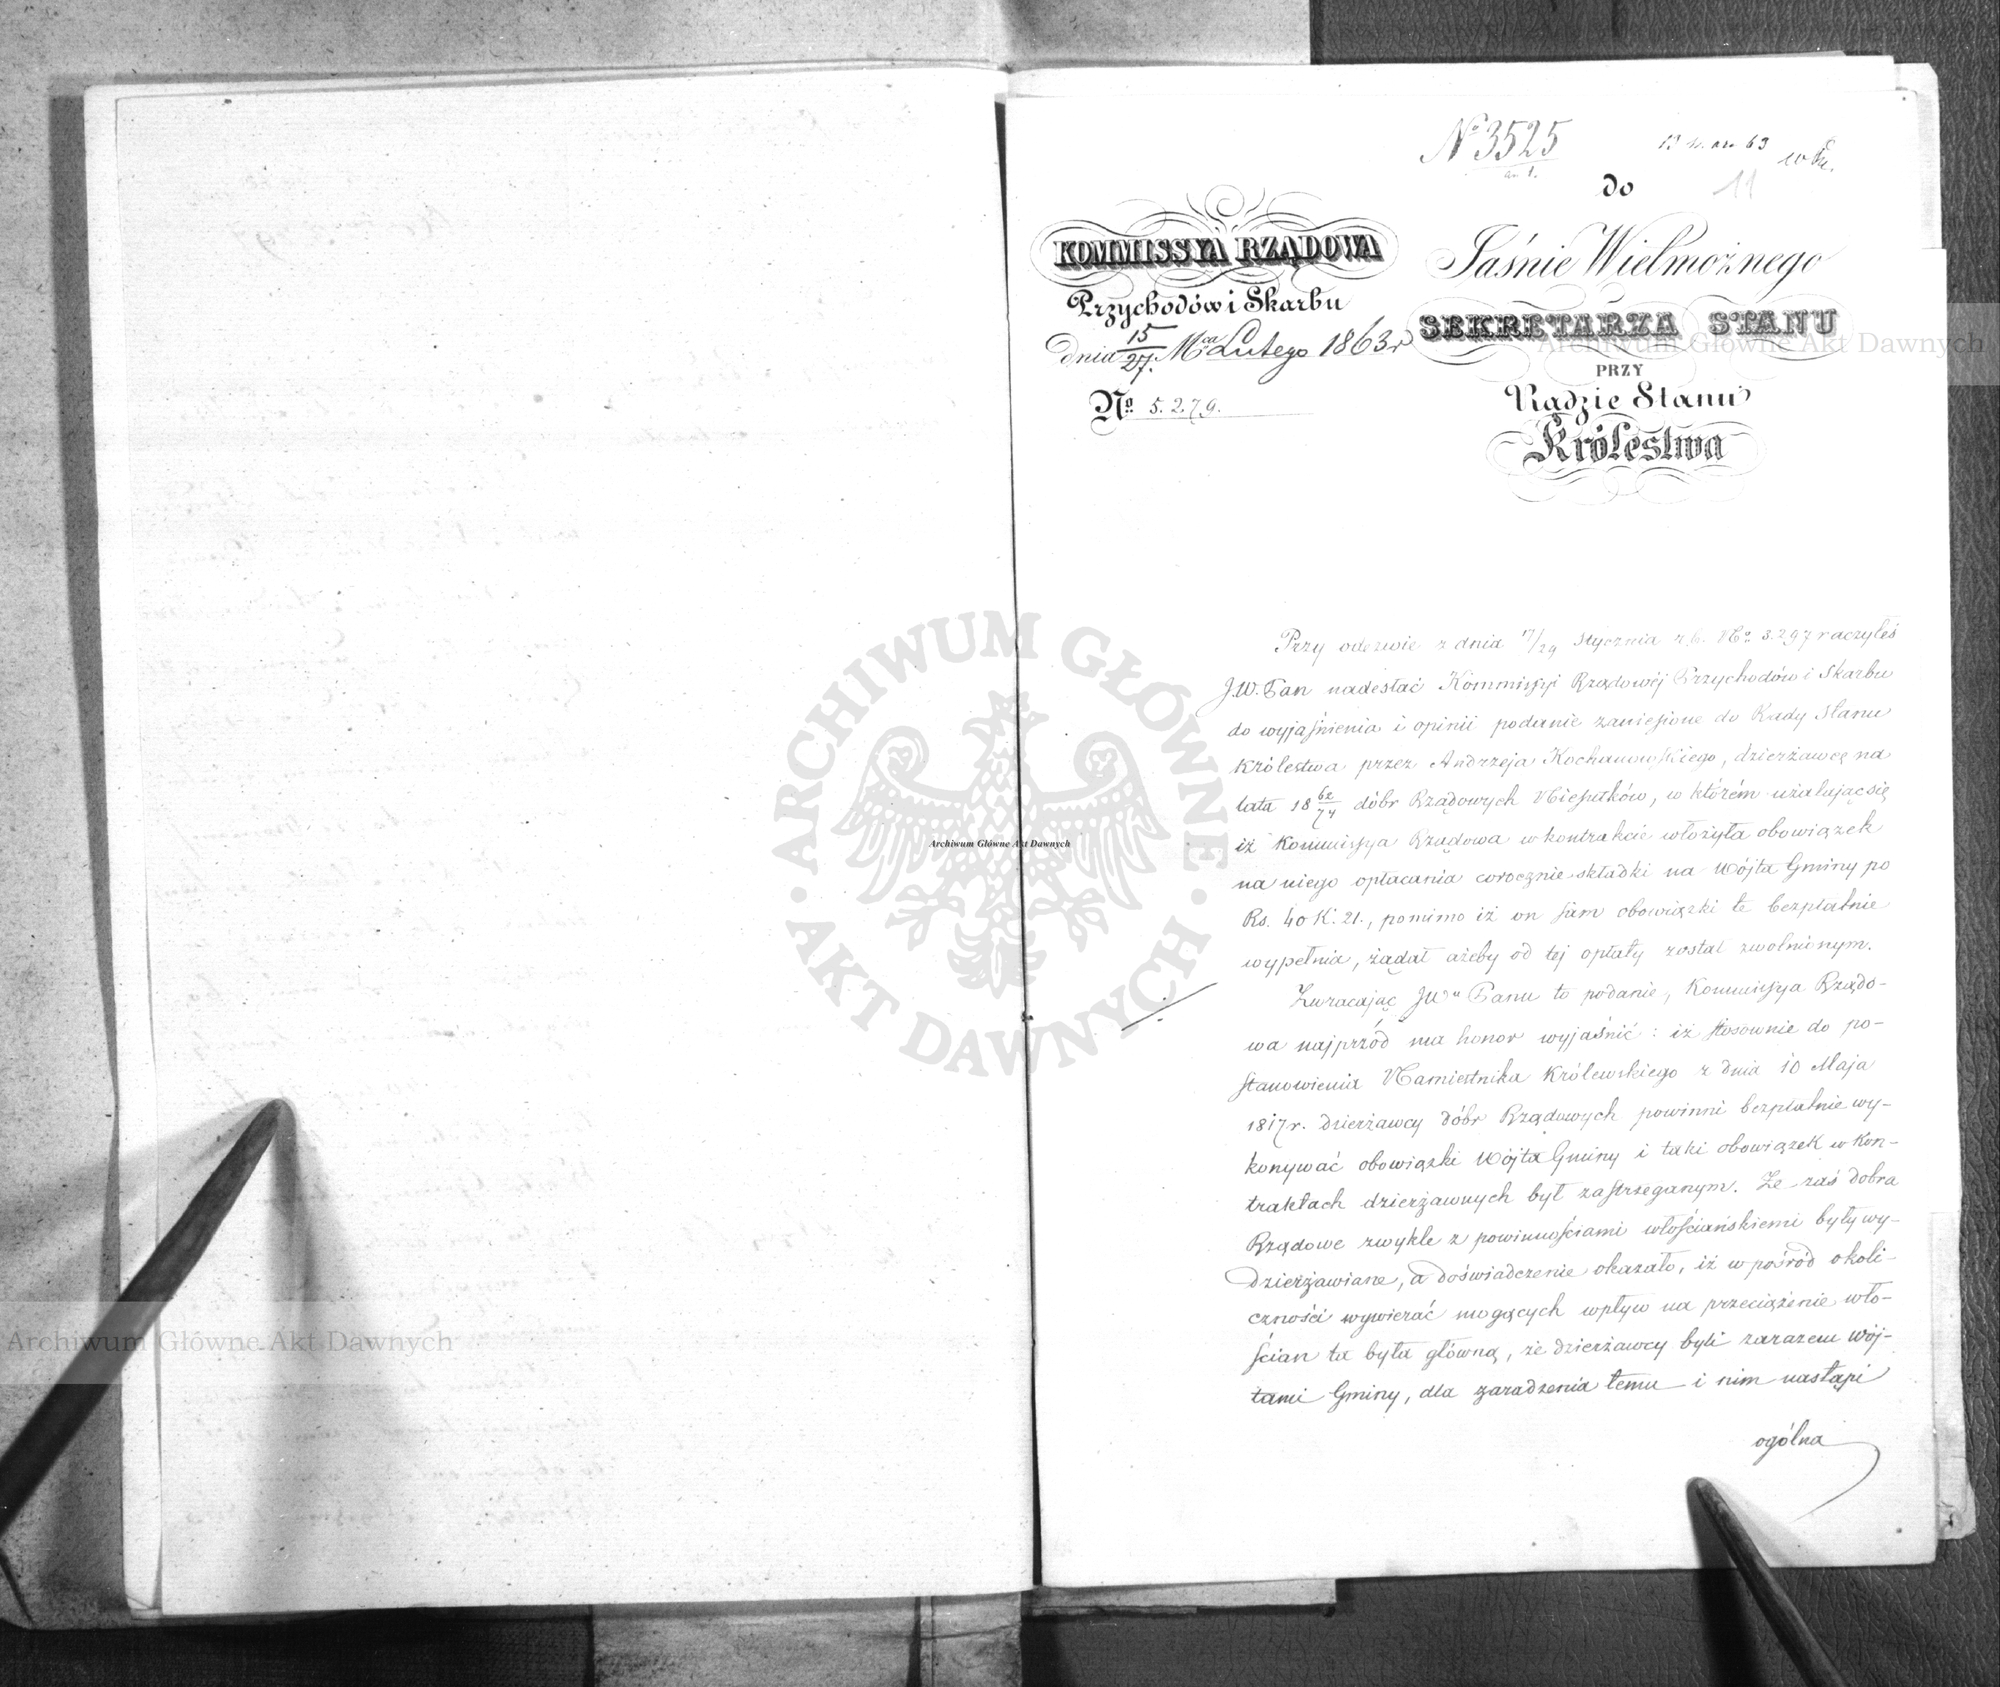 No 3525
63
11
do
KOMMISSYA RZĄDOWA
Przychodów i Skarbu
dnia 15/27 Mca Lutego 1863 r
No. 5.279.
Jaśnie Wielmożnego
SEKRETARZA STANU
PRZY
Radzie Stanu
Królestwa
Przy odezwie z dnia 17/29 Stycznia r. b. No. 3.297 raczyłeś
J.W. Pan nadesłać Kommissyi Rządowéj Przychodów i Skarbu
do wyjaśnienia i opinii podanie zaniesione do Rady Stanu
Królestwa przez Andrzeja Kochanowskiego, dzierżawcę na
lata 18 62/74 dóbr Rządowych Niesułków, w którém użalając się
iż Kommissya Rządowa w kontrakcie włożyła obowiązek
na niego opłacania corocznie składki na Wójta Gminy po
Rs. 40 K. 21., pomimo iż on sam obowiązki te bezpłatnie
wypełnia, żądał ażeby od tej opłaty został zwolnionym.
Zwracając JWu Panu to podanie, Kommissya Rządo-
wa najprzód ma honor wyjaśnić: iż stosownie do po-
stanowienia Namiestnika Królewskiego z dnia 10 Maja
1817 r. dzierżawcy dóbr Rządowych powinni bezpłatnie wy-
konywać obowiązki Wójta Gminy i taki obowiązek w kon-
traktach dzierżawnych był zastrzeganym. Że zaś dobra
Rządowe zwykle z powinnościami włościańskiemi były wy-
dzierżawiane, a doświadczenie okazało, iż w pośród okoli-
czności wywierać mogących wpływ na przeciążenie wło-
ścian ta była główną, że dzierżawcy byli zarazem Wój-
tami Gminy, dla zaradzenia temu i nim nastąpi
ogólna
ARCHIWUM GŁÓWNE · AKT DAWNYCH ·
Archiwum Główne Akt Dawnych
Archiwum Główne Akt Dawnych
Archiwum Główne Akt Dawnych